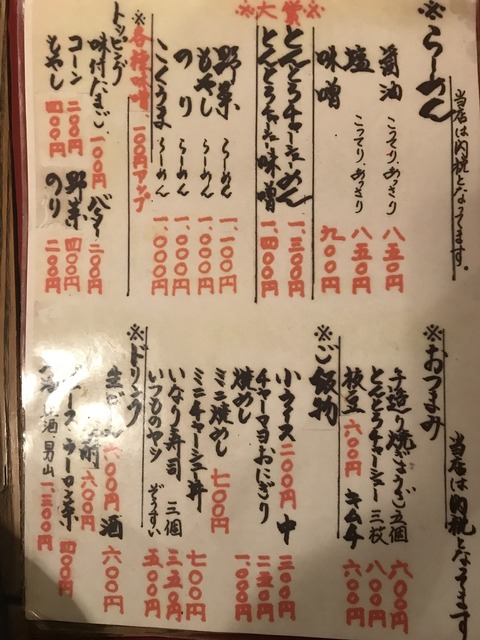 ※らーめん
当店は内税となってます。
醤油 こってり、あっさり 八五〇円
塩 こってり、あっさり 八五〇円
味噌 九〇〇円
※大賞※
とんとろチャーシューめん 一、三〇〇円
とんとろチャーシュー味噌 一、四〇〇円
野菜らーめん 一、一〇〇円
もやしらーめん 一、〇〇〇円
のりらーめん 一、〇〇〇円
こくうまらーめん 一、〇〇〇円
※各種味噌、一〇〇円アップ
トッピング
味付たまご、一〇〇円 バター 二〇〇円
コーン 二〇〇円 野菜 四〇〇円
もやし 四〇〇円 のり 二〇〇円
※おつまみ
当店は内税となってます
手造り焼ぎょうざ 五個 六〇〇円
とんとろチャーシュー 三枚 八〇〇円
枝豆 六〇〇円 キムチ 六〇〇円
※ご飯物
小ライス 二〇〇円 中 三〇〇円
チャーマヨおにぎり 二五〇円
焼めし 一、〇〇〇円
ミニ焼めし 七〇〇円
ミニチャーシュー丼 七〇〇円
いなり寿司 三個 三五〇円
いつものヤツ ぞうすい 五〇〇円
※ドリンク
生ビール 六〇〇円 酒 六〇〇円
六〇〇円
ウーロン茶 四〇〇円
酒・男山 一、三〇〇円